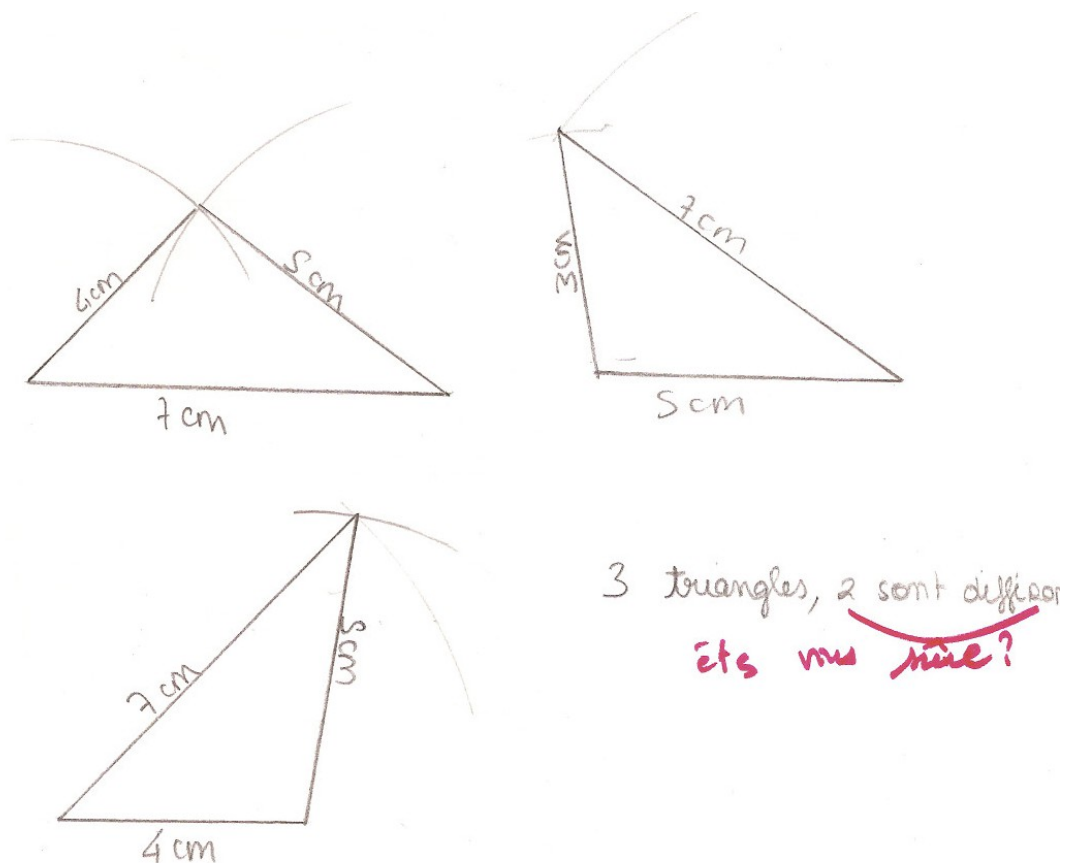 4cm
5cm
7cm
7cm
5cm
7cm
5cm
4cm
3 triangles, 2 sont
Ets vous sûre?